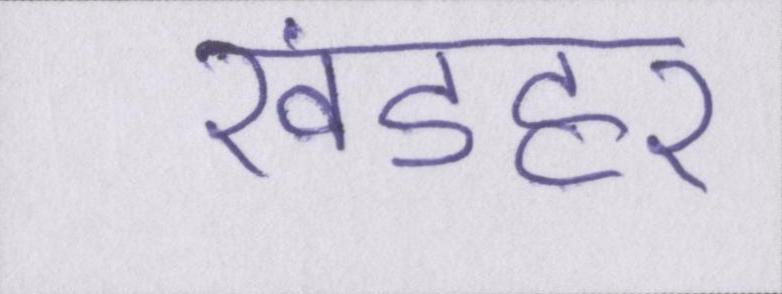 खंडहर